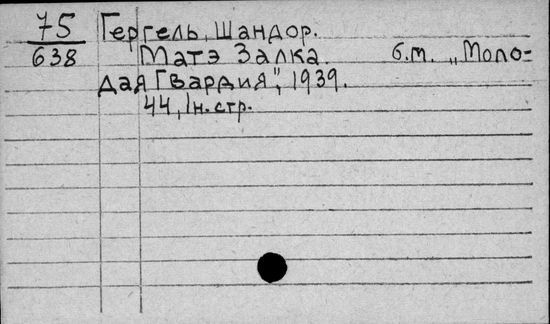 75 Гергель, Шандор.
638 Матэ Залка. б.м. „Моло-
дая Гвардия", 1939.
44, 1н. стр.